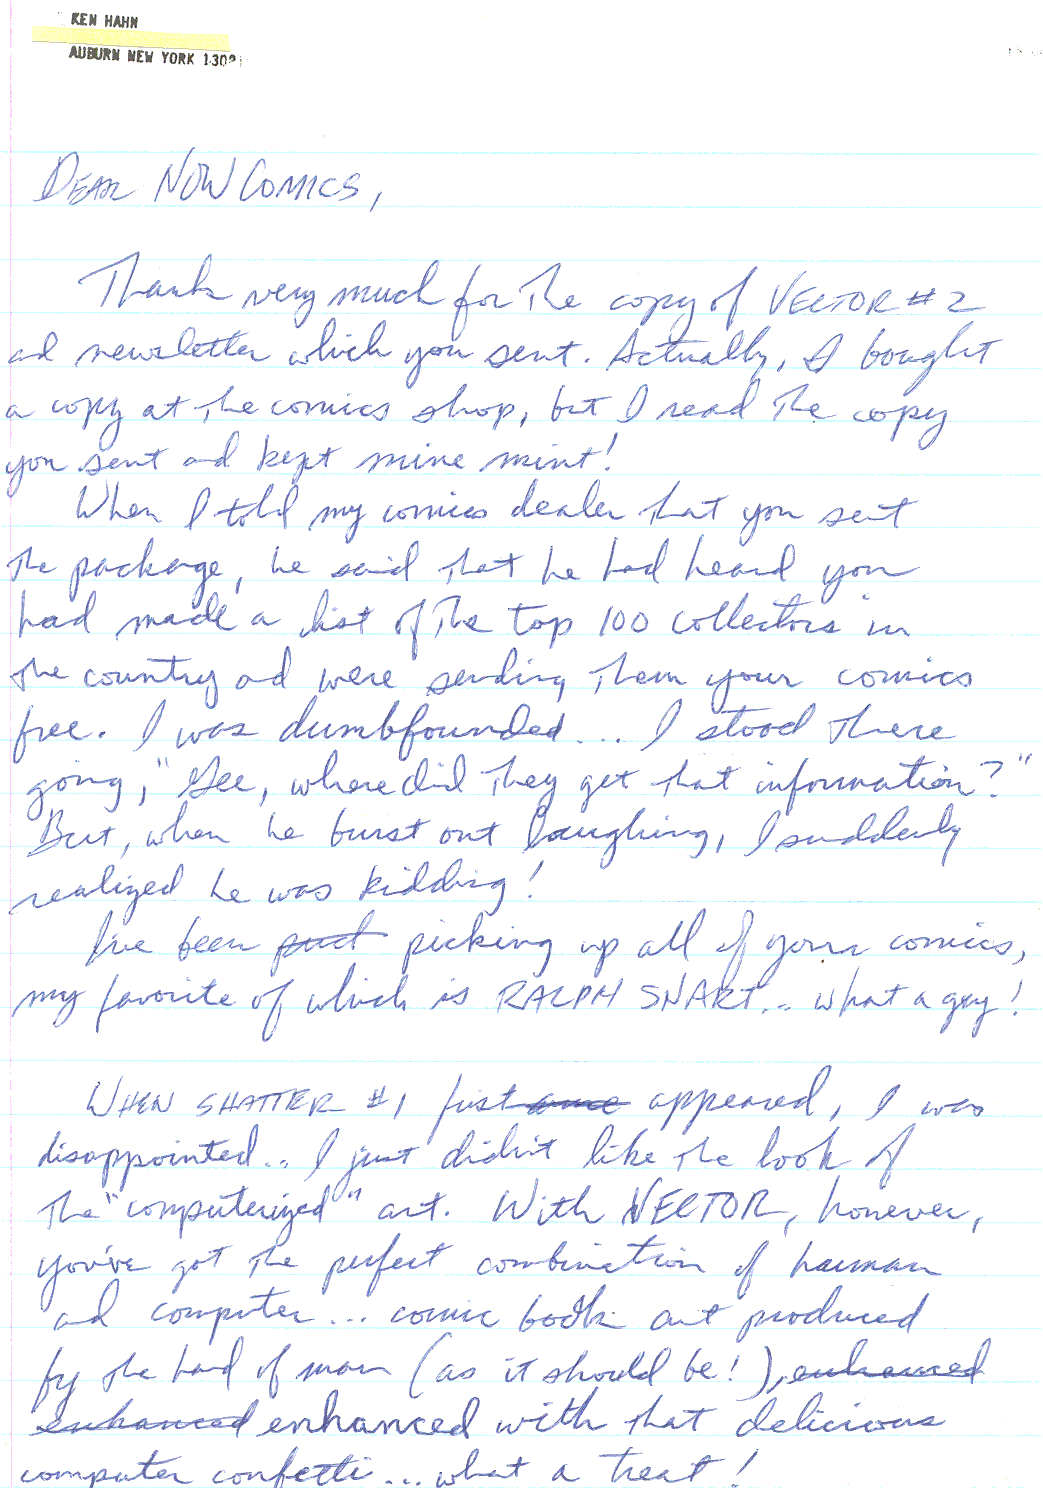 KEN HAHN
AUBURN NEW YORK 13021
DEAR NOW COMICS,
Thank very much for the copy of VECTOR #2
and newsletter which you sent. Actually, I bought
a copy at the comics shop, but I read the copy
you sent and kept mine mint!
When I told my comics dealer that you sent
the package, he said that he had heard you
had made a list of the top 100 collectors in
the country and were sending them your comics
free. I was dumbfounded... I stood there
going, "Gee, where did they get that information?"
But, when he burst out laughing, I suddenly
realized he was kidding!
I've been put picking up all of your comics,
my favorite of which is RALPH SNART... what a guy!
WHEN SHATTER #1 first came appeared, I was
disappointed... I just didn't like the look of
the "computerized" art. With VECTOR, however,
you've got the perfect combination of human
and computer... comic book art produced
by the hand of man (as it should be!), enhanced
enhanced enhanced with that delicious
computer confetti... what a treat!